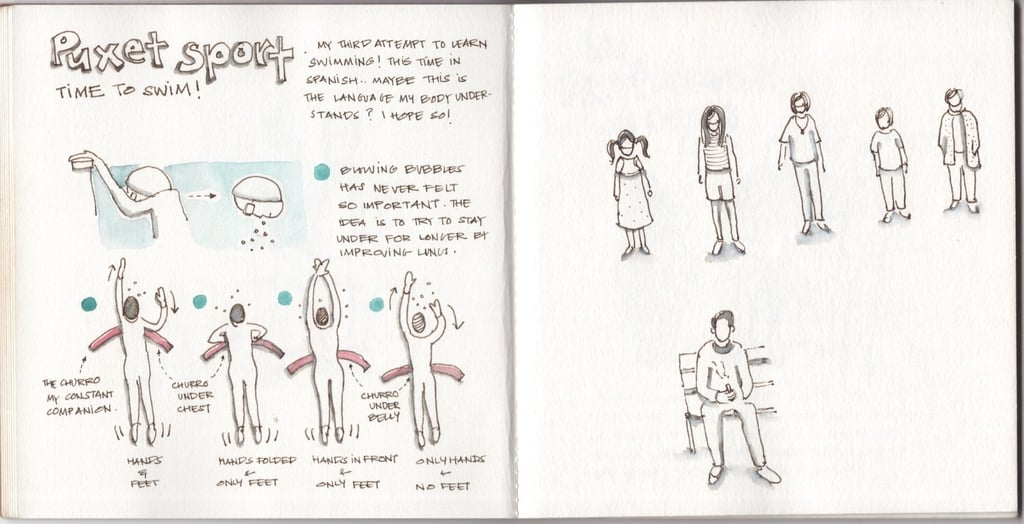 Puxet sport
TIME TO SWIM!
. MY THIRD ATTEMPT TO LEARN
SWIMMING! THIS TIME IN
SPANISH.. MAYBE THIS IS
THE LANGUAGE MY BODY UNDER-
STANDS? I HOPE SO!
BLOWING BUBBLES
HAS NEVER FELT
SO IMPORTANT. THE
IDEA IS TO TRY TO STAY
UNDER FOR LONGER BY
IMPROVING LUNGS.
THE CHURRO
MY CONSTANT
COMPANION.
CHURRO
UNDER
CHEST
CHURRO
UNDER
BELLY
HANDS
&
FEET
HANDS FOLDED
&
ONLY FEET
HANDS IN FRONT
&
ONLY FEET
ONLY HANDS
&
NO FEET